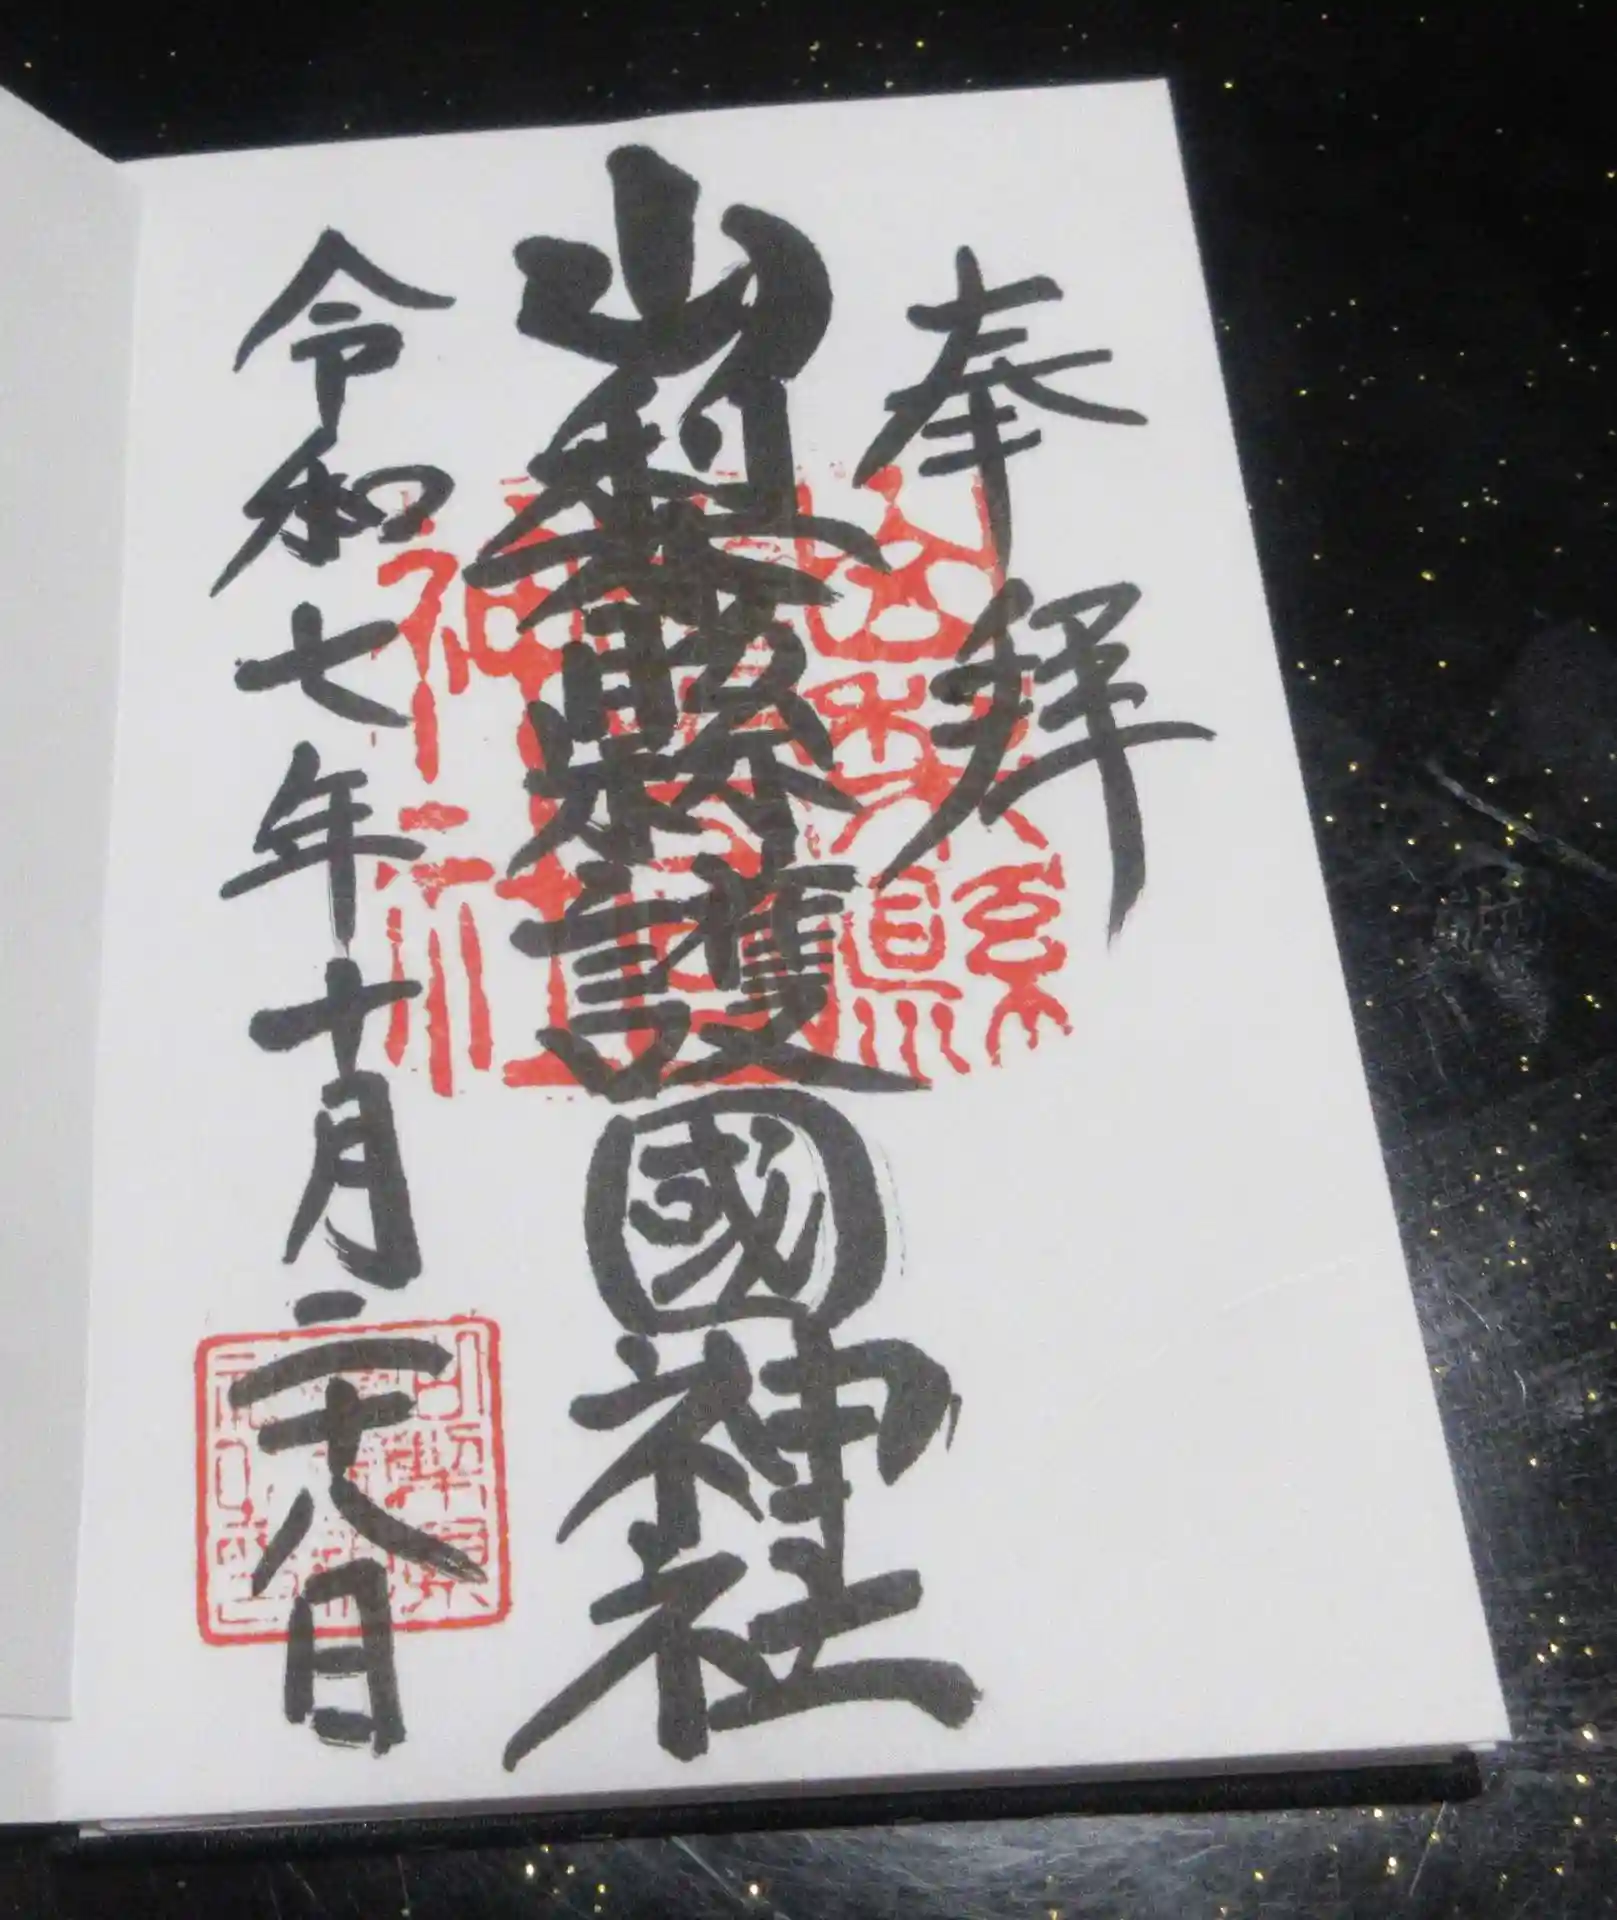 奉拝
山梨縣護國神社
令和七年十月二十八日